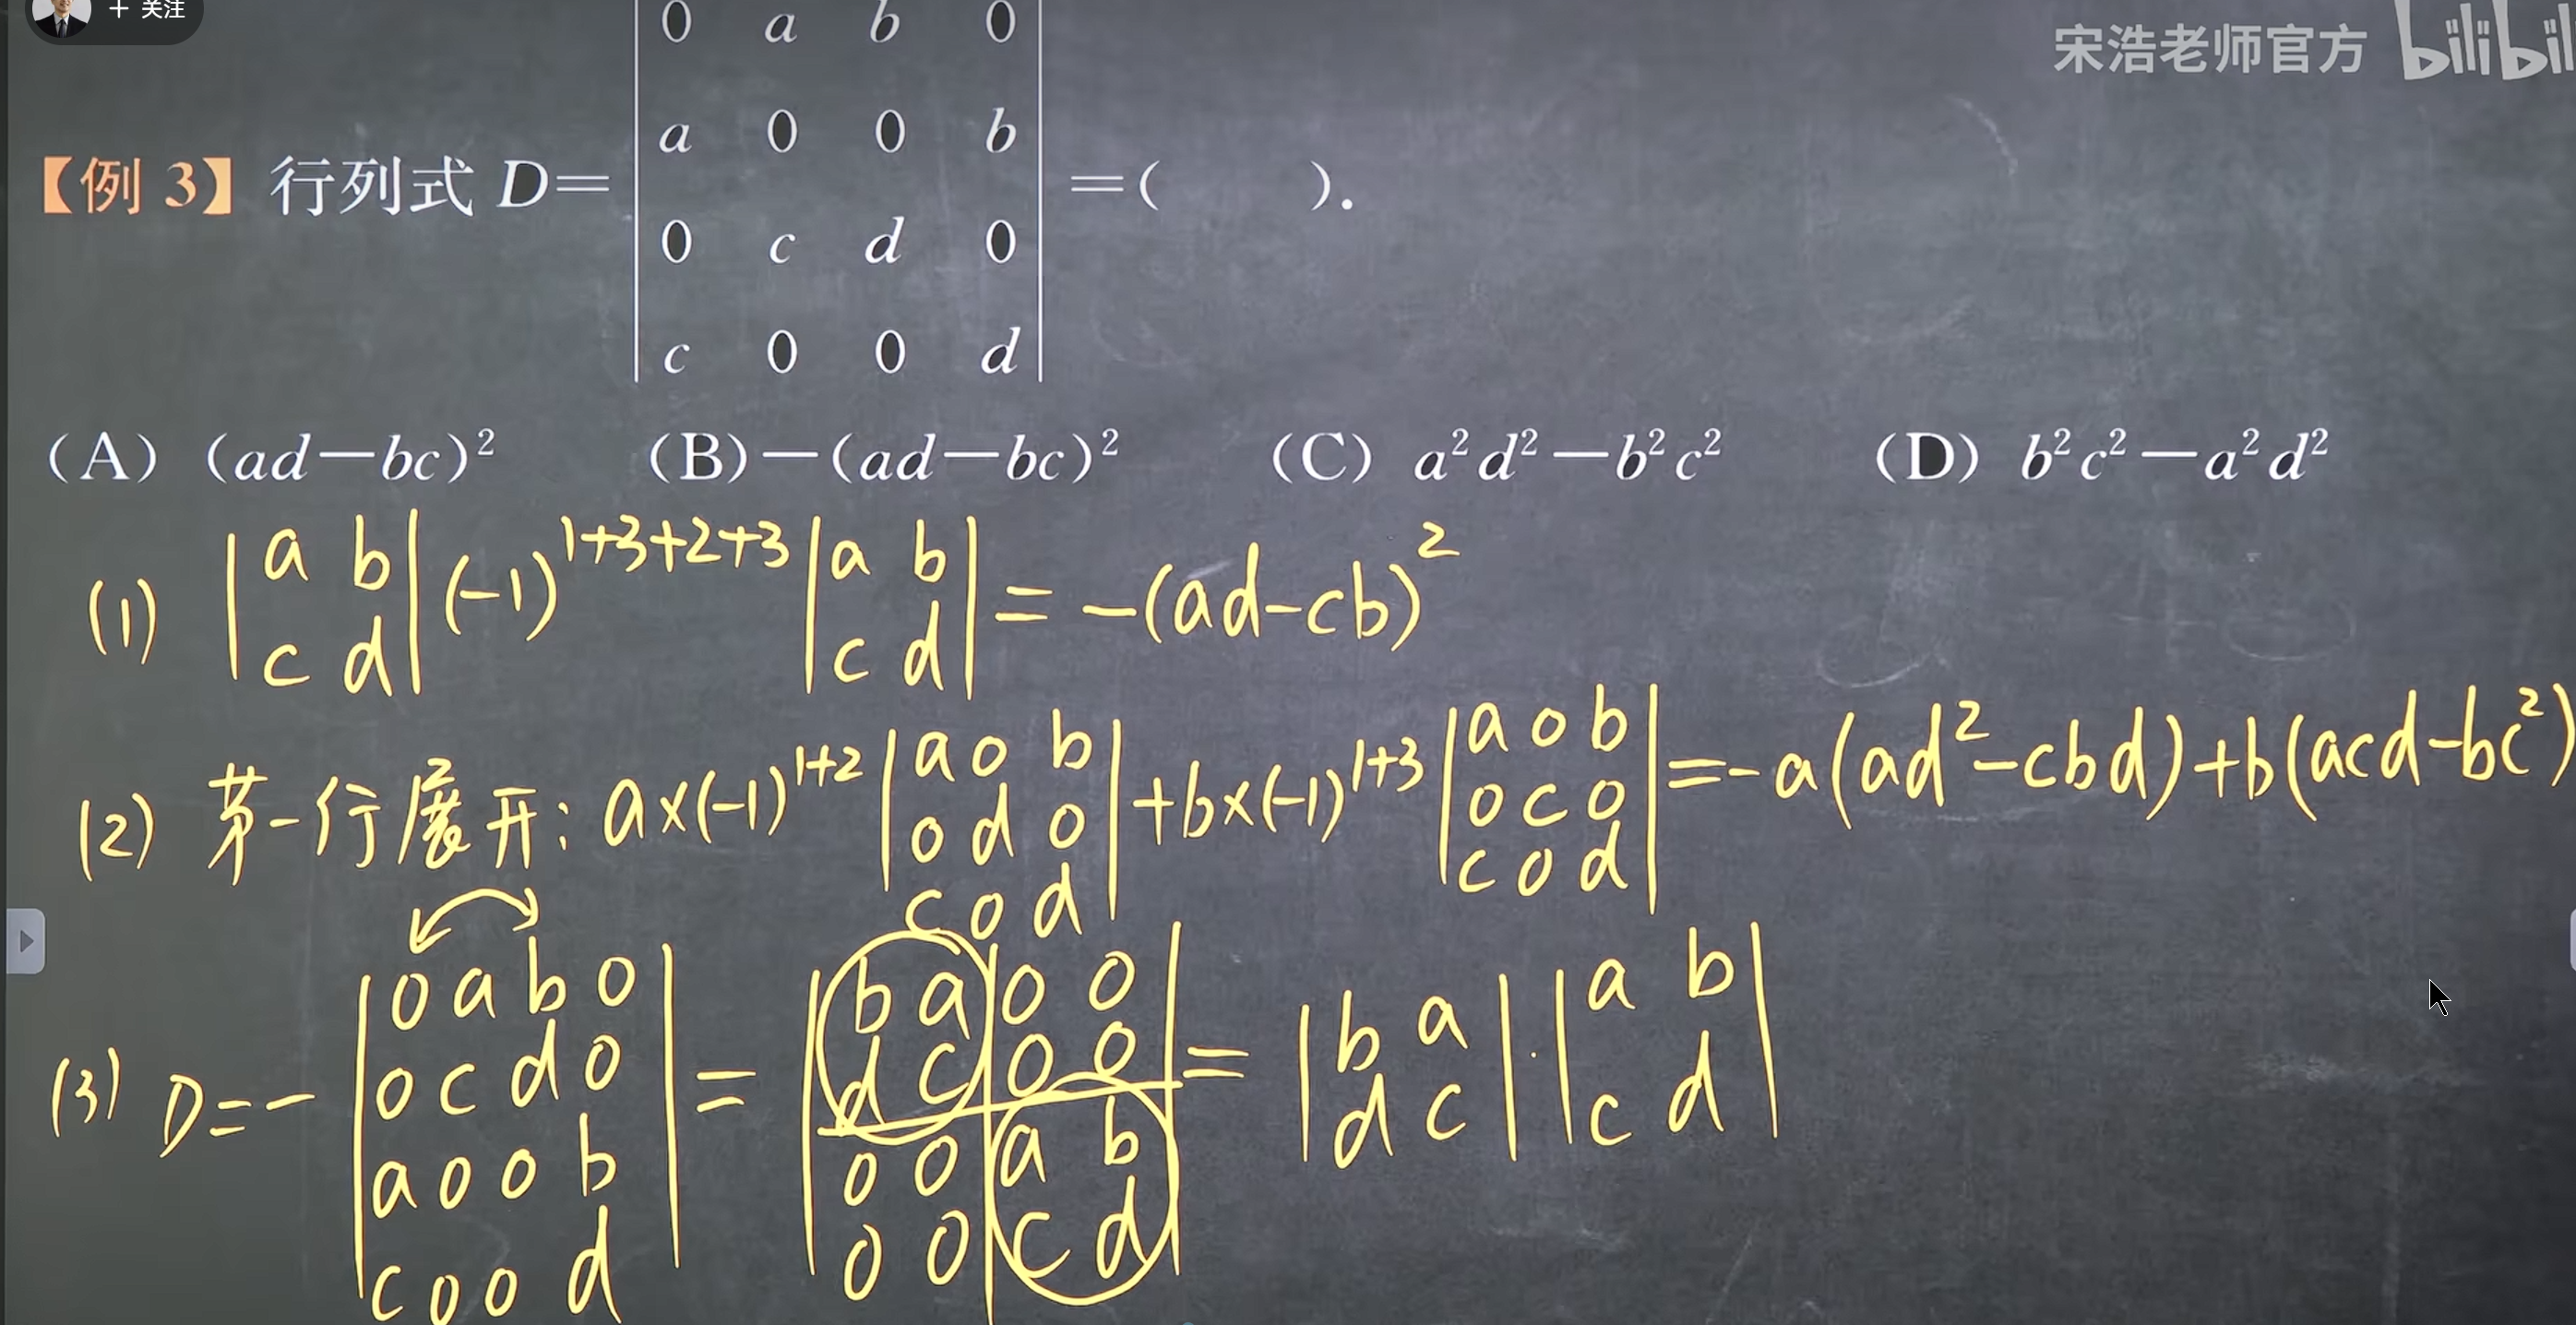 + 关注
宋浩老师官方 bilibil
【例 3】行列式 D=
0 a b 0
a 0 0 b
0 c d 0
c 0 0 d
=( ).
(A) (ad−bc)² (B)−(ad−bc)² (C) a²d²−b²c² (D) b²c²−a²d²
(1) |a b; c d| (-1)^{1+3+2+3} |a b; c d| = -(ad-cb)²
(2) 第一行展开: a×(-1)^{1+2} |a 0 b; 0 d 0; c 0 d| +b×(-1)^{1+3} |a 0 b; 0 c 0; c 0 d| =-a(ad²-cbd)+b(acd-bc²)
(3) D=- |0 a b 0; 0 c d 0; a 0 0 b; c 0 0 d| = |b a 0 0; d c 0 0; 0 0 a b; 0 0 c d| = |b a; d c| · |a b; c d|